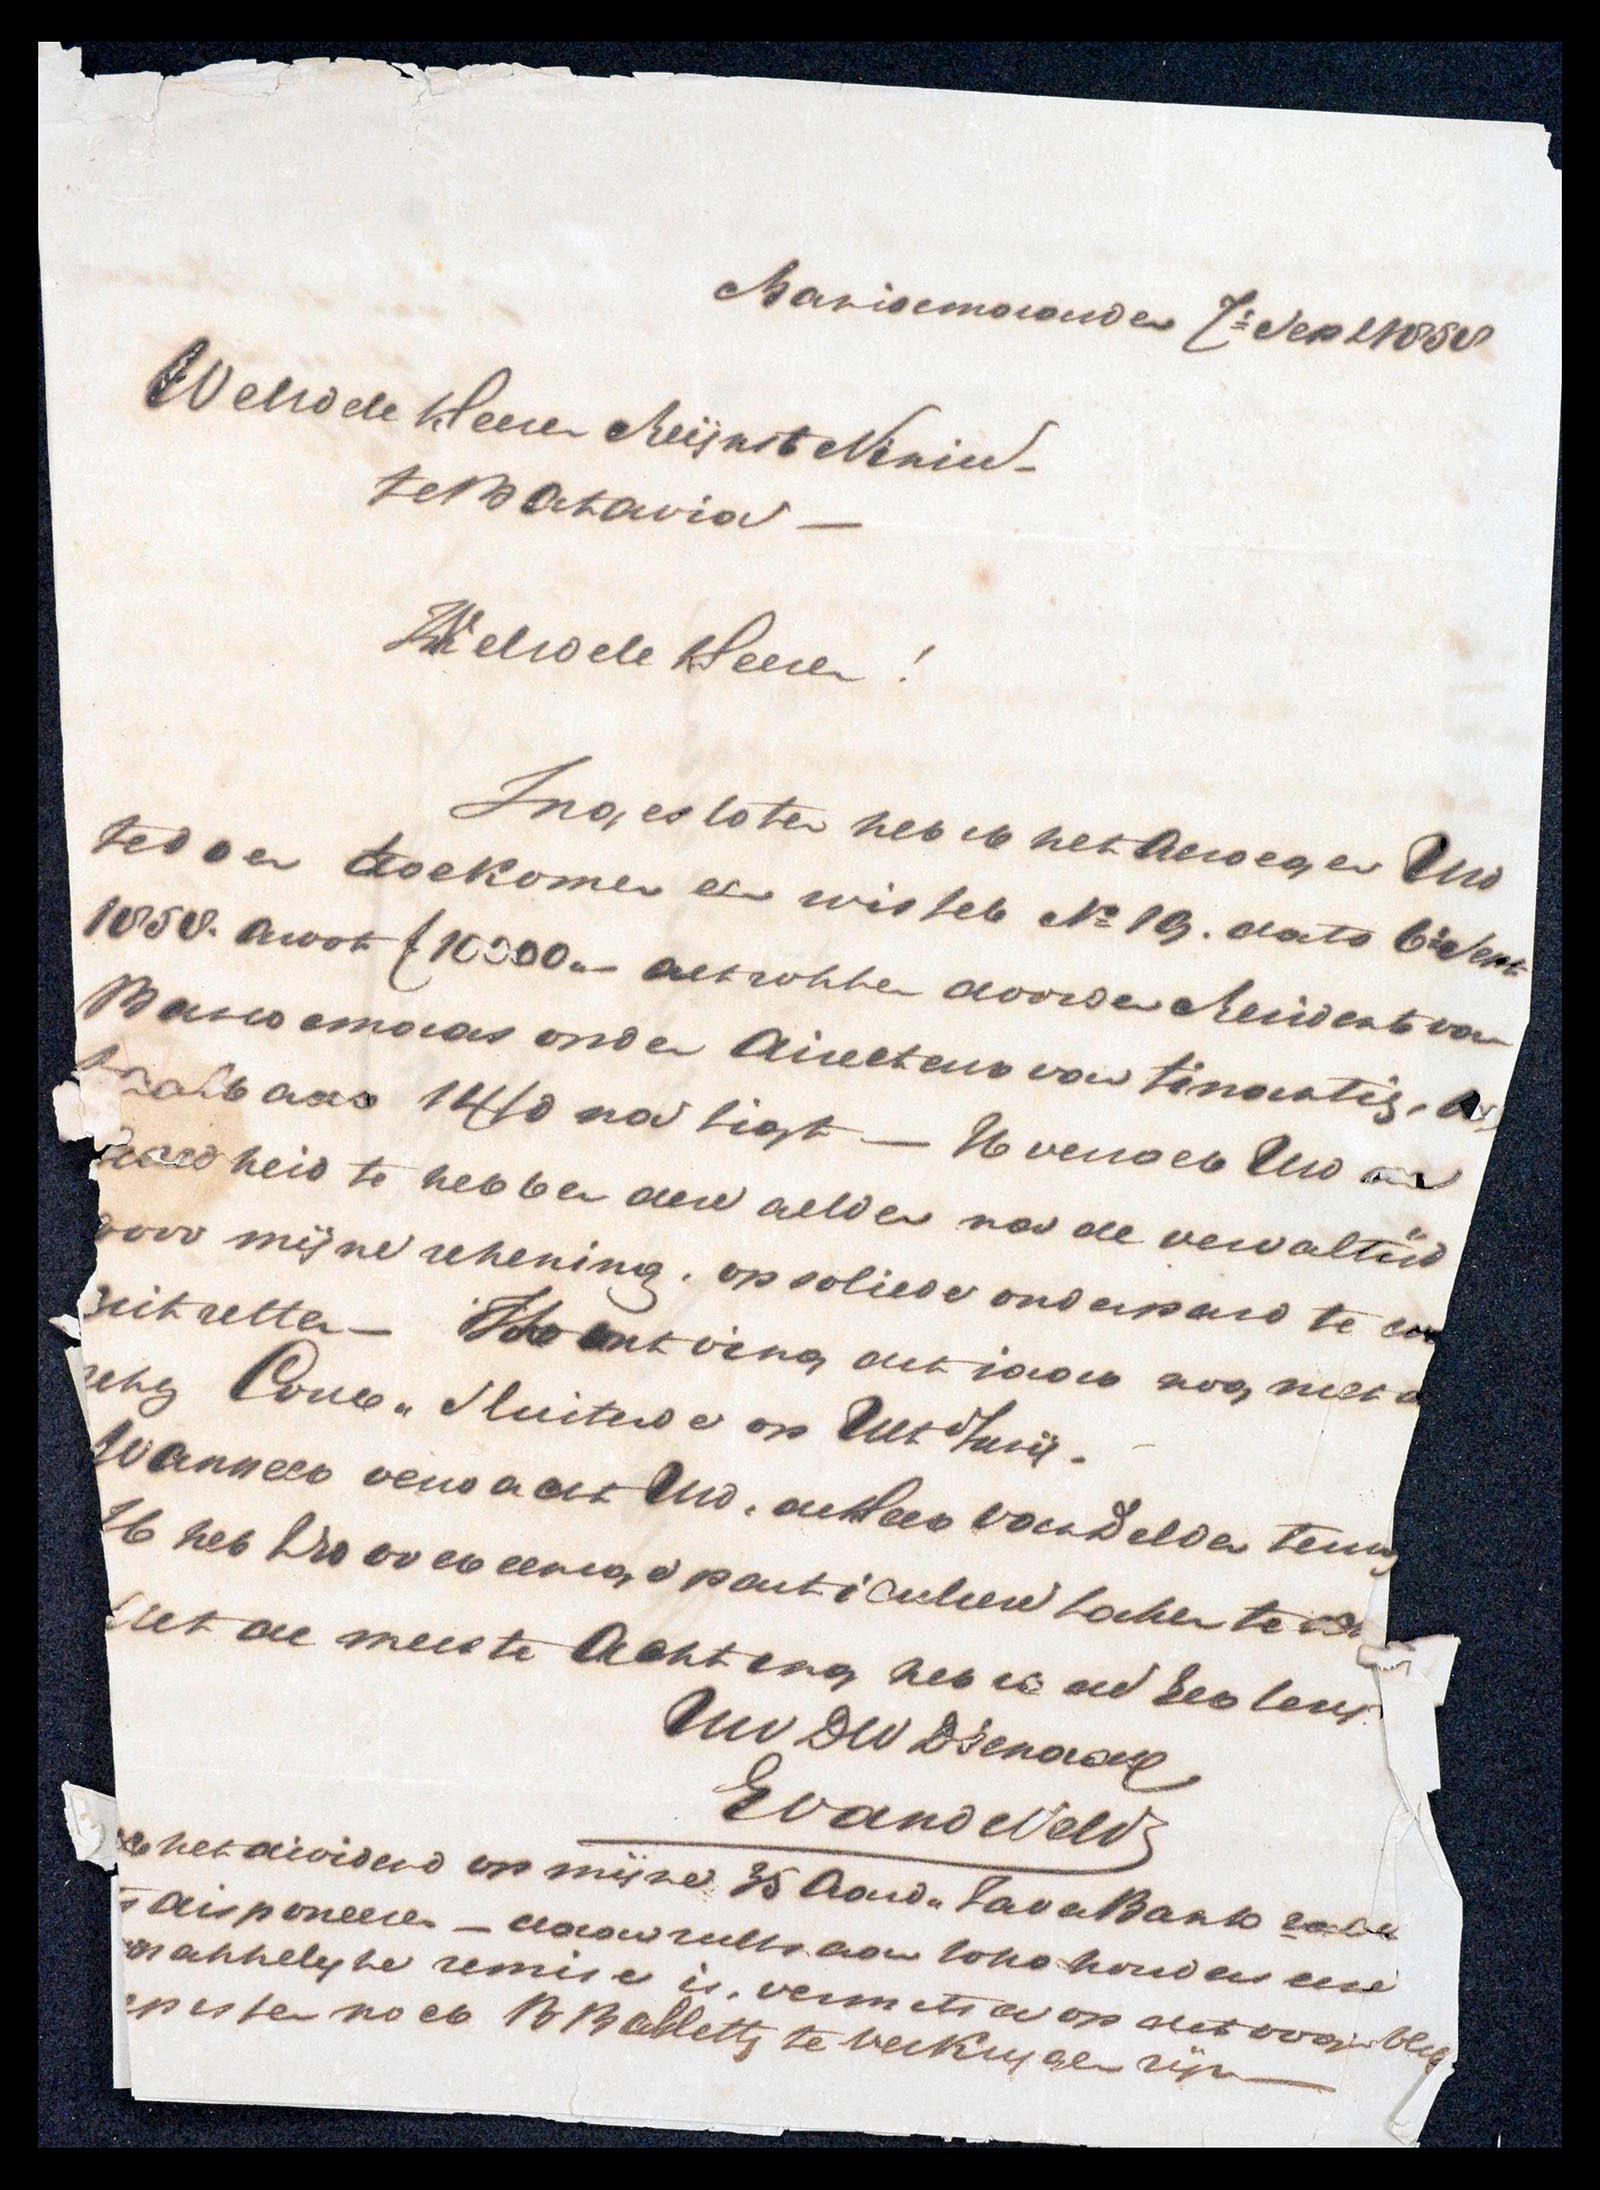 Banjoemaas den 7: Sept 1858
WelEd ele Heeren Reijnst & Vinju
te Batavia —
WelEdele Heeren !
Ingesloten heb ik het genoegen UEd
te doen toekomen een wissel No 19. dato 6: Sept
1858. groot f 10000.- getrokken door den Resident van
Banjoemaas op den Directeur van financien,
14/d na zigt — Ik verzoek UEd
heid te hebben deze gelden na de vervaltijd
voor mijne rekening, op soliede onderpand te
uitzetten — Ik ontving dit jaar nog niet
Cour. sluitende op Ult Junij.
Wanneer verwacht UEd. de Heer van Delden terug
Ik heb hem over eenige particuliere zaken te
Met de meeste Achting heb ik de Eer te zijn
UEd DW Dienaar
E van de Velde
het dividend op mijne 35 Aand. Java Bank
te disponeeren — daar zulks aan toko houders eene
gemakkelijke remise is, vermits er op het oogenblik
noch B Billetten te verkrijgen zijn —